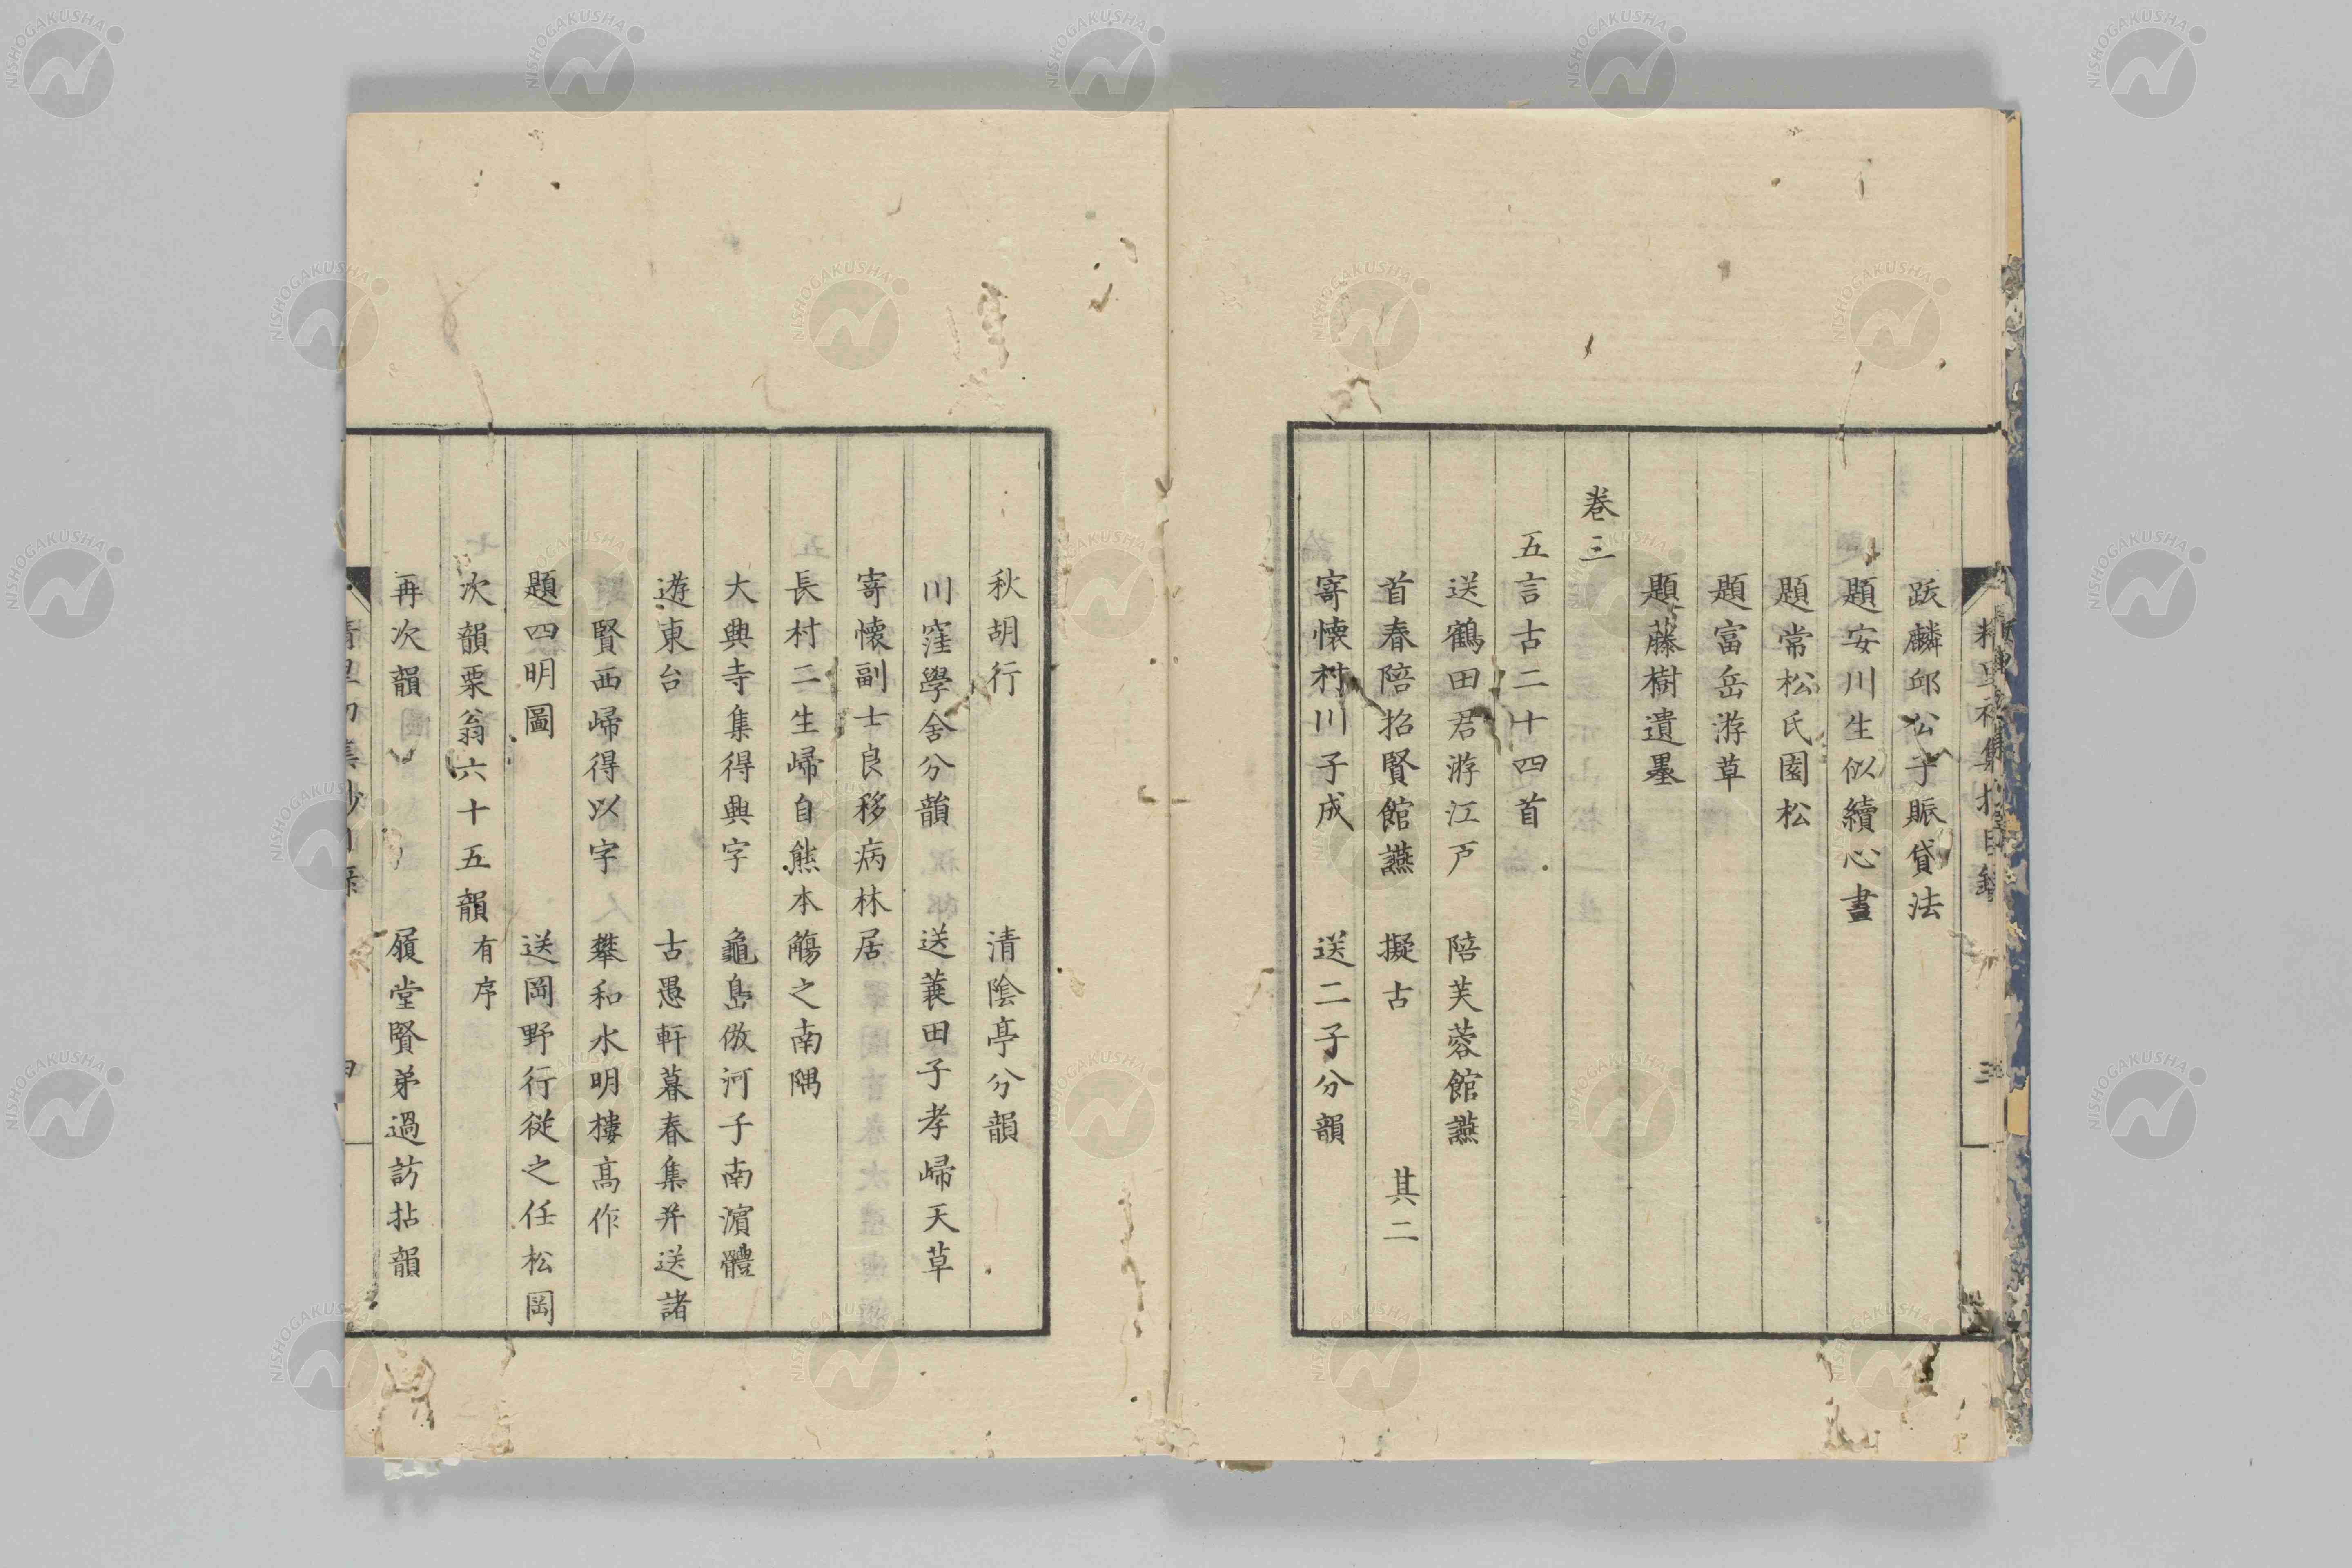 跋麟邱公子賑貸法
題安川生似續心畫
題常松氏園松
題富岳游草
題藤樹遺墨
卷三
五言古二十四首
送鶴田君游江戸　陪芙蓉館讌
首春陪招賢館讌　擬古　其二
寄懷村川子成　送二子分韻
秋胡行　清陰亭分韻
川窪學舍分韻　送蓑田子孝歸天草
寄懷副士良移病林居
長村二生歸自熊本觴之南隅
大興寺集得興字　龜島倣河子南濵體
遊東台　古愚軒暮春集并送諸
賢西歸得以字　攀和水明樓髙作
題四明圖　送岡野行從之任松岡
次韻栗翁六十五韻有序
再次韻　履堂賢弟過訪拈韻
NISHOGAKUSHA